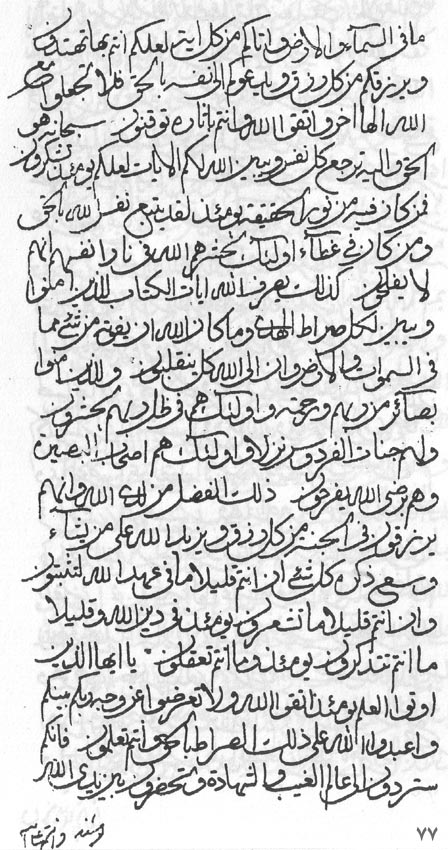 ما في السمآء و الارض و اتاكم من كل اية لعلكم انتم بها تهتدون
و يرزقكم من كل رزق و يدعوكم الى نفسه بالحق فلا تجعلوا مع
الله الها اخر و اتقوا الله و انتم باثاره توقنون سبحانه هو
الحق و اليه ترجع كل نفس و يبين الله لكم الايات لعلكم يومئذ تشكرون
فمن كان فيه من نور الحقيقه يومئذ لقد يتبع نفس الله بالحق
و من كان في غطآء اولئك يحشرهم الله في نار انفسهم انهم
لا يفلحون كذلك يعرف الله ايات الكتاب للذين امنوا
و يبين لكل صراط الهدى و ما كان الله ان يفوته من شئ مما
في السموات و الارض و ان الى الله كل ينقلبون و للذين امنوا
بصائر من ربهم و رحمة و اولئك هم في ظل ربهم يحشرون
و لهم جنات الفردوس نزلا و اولئك هم اصحاب البصيرة
و هم برضى الله يفرحون ذلك الفضل من لدى الله و انهم
يرزقون في الجنة من كل رزق و يزيد الله على من يشاء
وسع ذكره كل شئ ان انتم قليلا ما في عهد الله لتفتنون
و ان انتم قليلا ما تشعرون يومئذ في دين الله و قليلا
ما انتم تتذكرون يومئذ و ما انتم تعقلون يا ايها الذين
اوتوا العلم يومئذ اتقوا الله و لا تعرضوا عن وجه ربكم بينكم
و اعبدوا الله على ذلك الصراط بالحق و انتم تعلمون فانكم
ستردون الى عالم الغيب و الشهادة و تحضرون بين يدى الله
٧٧